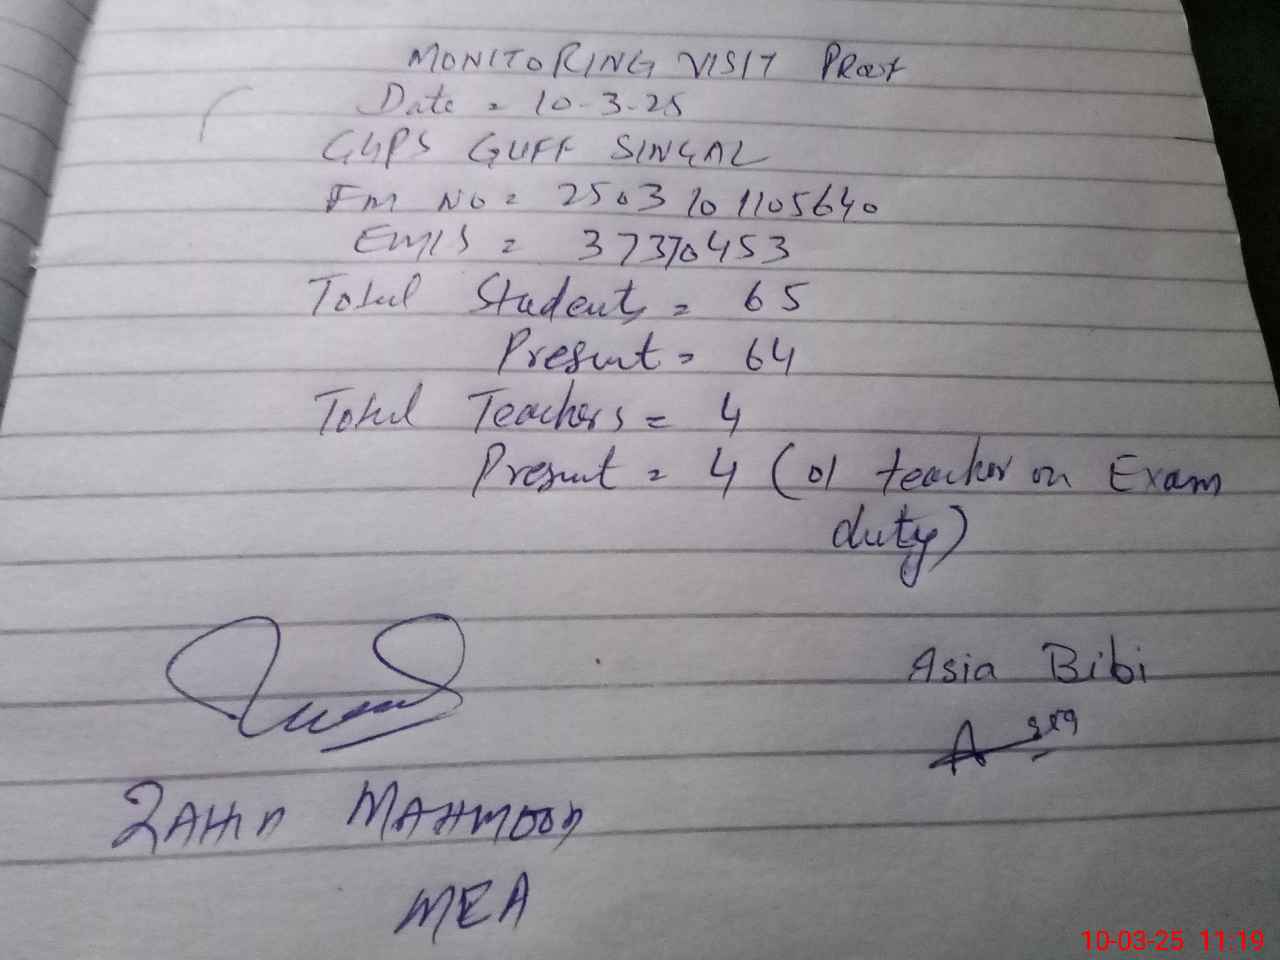 MONITORING VISIT PROOF
Date = 10-3-25
GGPS GUFF SINGAL
FM NO = 2503101105640
EMIS = 37370453
Total Students = 65
Present = 64
Total Teachers = 4
Present = 4 (01 teacher on Exam
duty)
Asia Bibi
Asia
ZAHID MAHMOOD
MEA
10-03-25 11:19